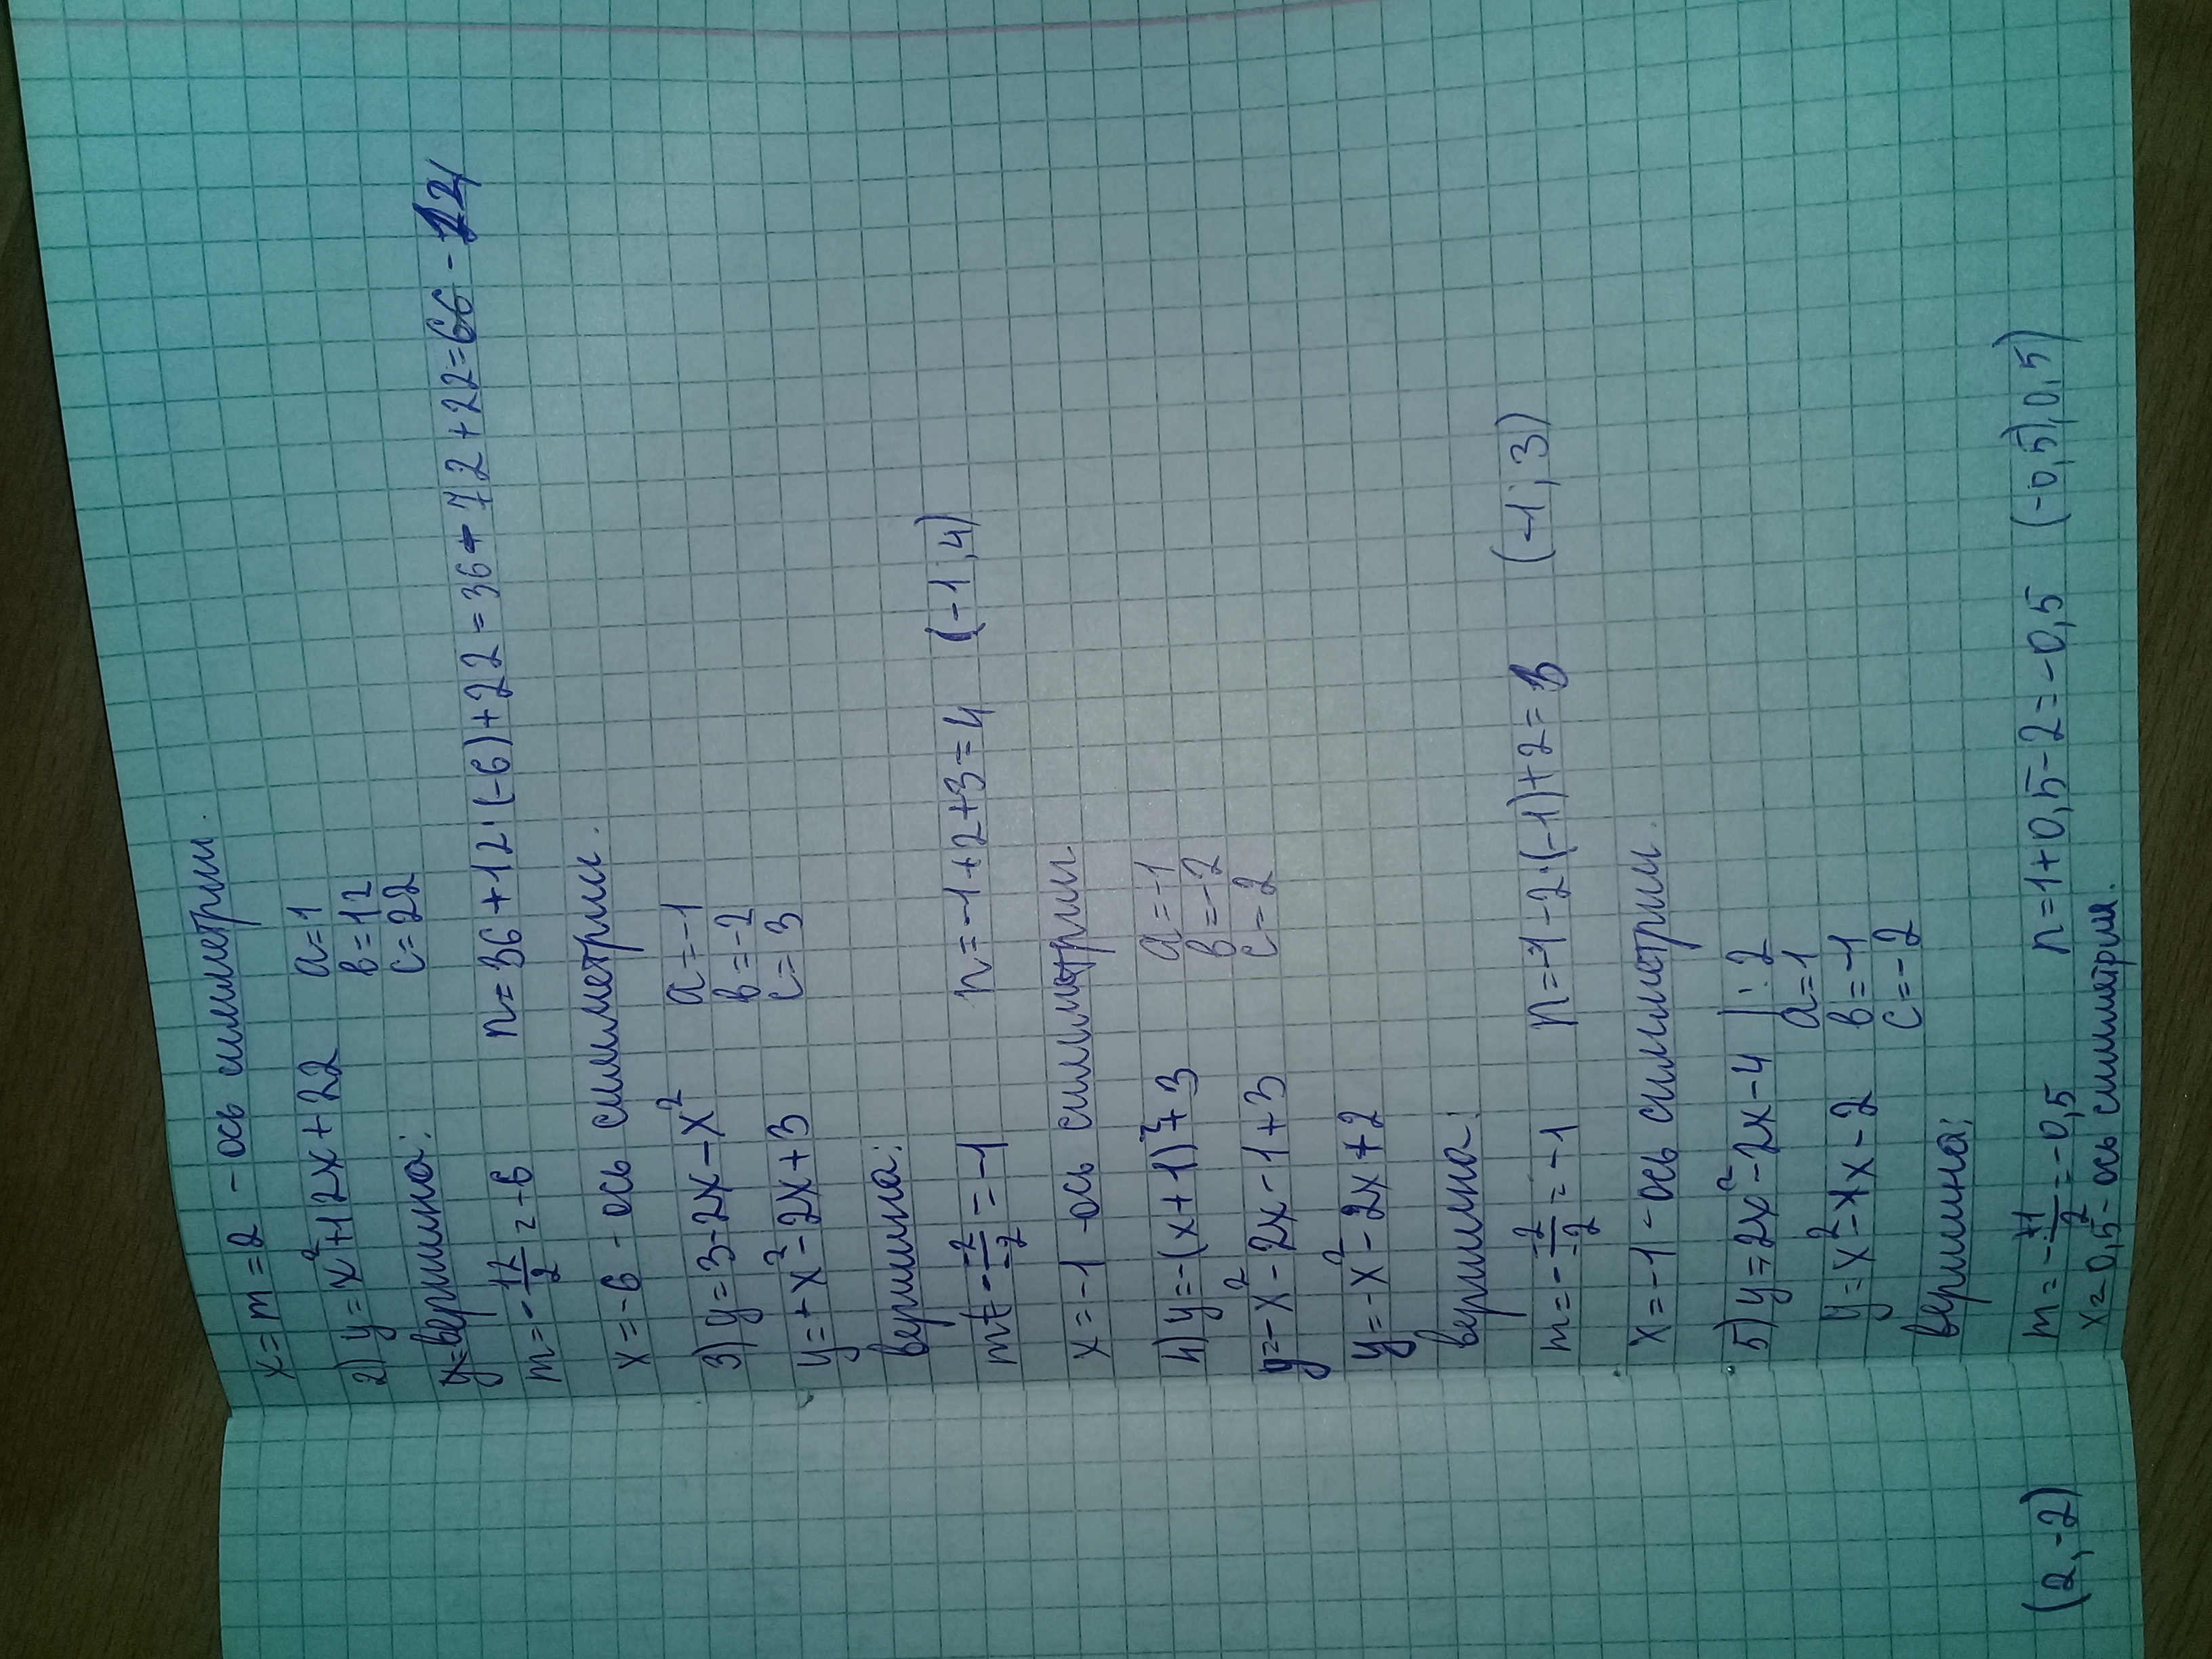 x = m = 2 - ось симметрии.
2) y = x²+12x+22   a=1
в=12
c=22
вершина:
m = -12/2 = -6   n = 36+12·(-6)+22 = 36-72+22=66 -14
x = -6 - ось симметрии.
3) y = 3-2x-x²   a=-1
в=-2
y = -x²-2x+3   c=3
вершина:
m = - -2/-2 = -1   n = -1+2+3=4   (-1;4)
x = -1 - ось симметрии
4) y = -(x+1)²+3   a=-1
в=-2
y = -x²-2x-1+3   c=2
y = -x²-2x+2
вершина:
m = - -2/-2 = -1   n = -1-2·(-1)+2=3   (-1;3)
x = -1 - ось симметрии.
5) y = 2x²-2x-4 |:2
a=1
y = x²-x-2   в=-1
c=-2
вершина:
(2,-2)   m = - -1/2 = -0,5   n = 1+0,5-2 = -0,5   (-0,5),0,5)
x = 0,5 - ось симметрии.